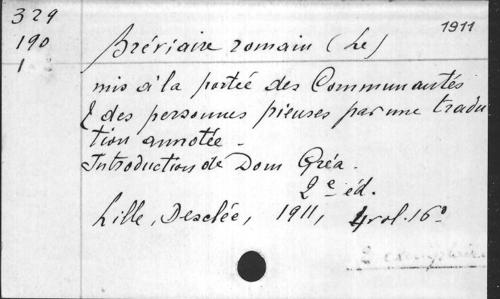 329
190
1
1911
Bréviaire romain (Le)
mis à la portée des Communautés
& des personnes pieuses par une traduc
tion annotée.
Introduction de Dom Gréa.
2e éd.
Lille, Desclée, 1911, 4 vol. 16°
2 exemplaires